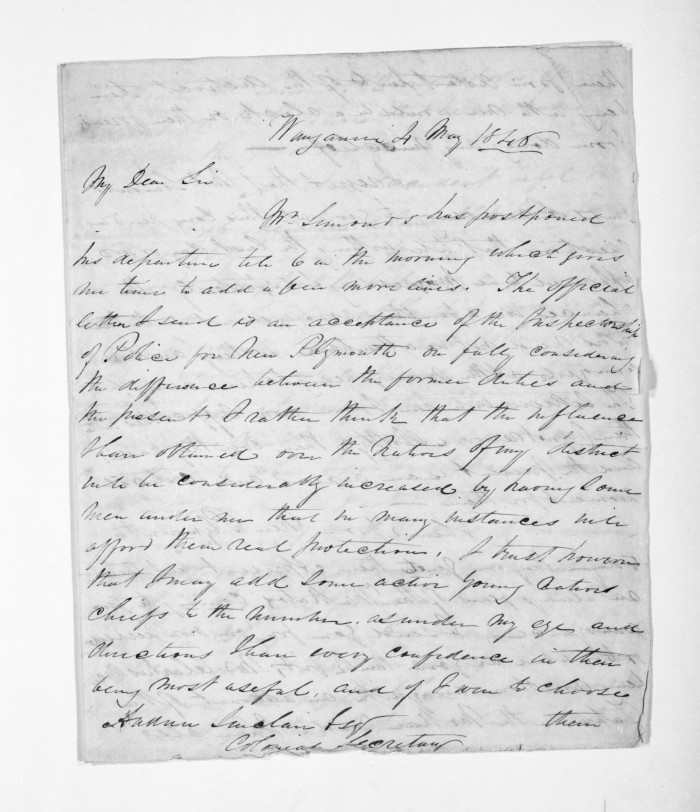 Wanganui 4 May 1846
My Dear Sir
Mr Simonds has postponed
his departure till 6 in the morning which gives
me time to add a few more lines. The official
letter I send is an acceptance of the Inspectorship
of Police for New Plymouth on fully considering
the difference between the former duties and
the present I rather think that the influence
I have obtained over the Natives of my district
will be considerably increased by having some
men under me that in many instances will
afford them real protection, I trust however
that I may add some active young natives
chiefs to the number, as under my eye and
directions I have every confidence in their
being most useful, and if I were to choose
Andrew Sinclair Esq them
Colonial Secretary